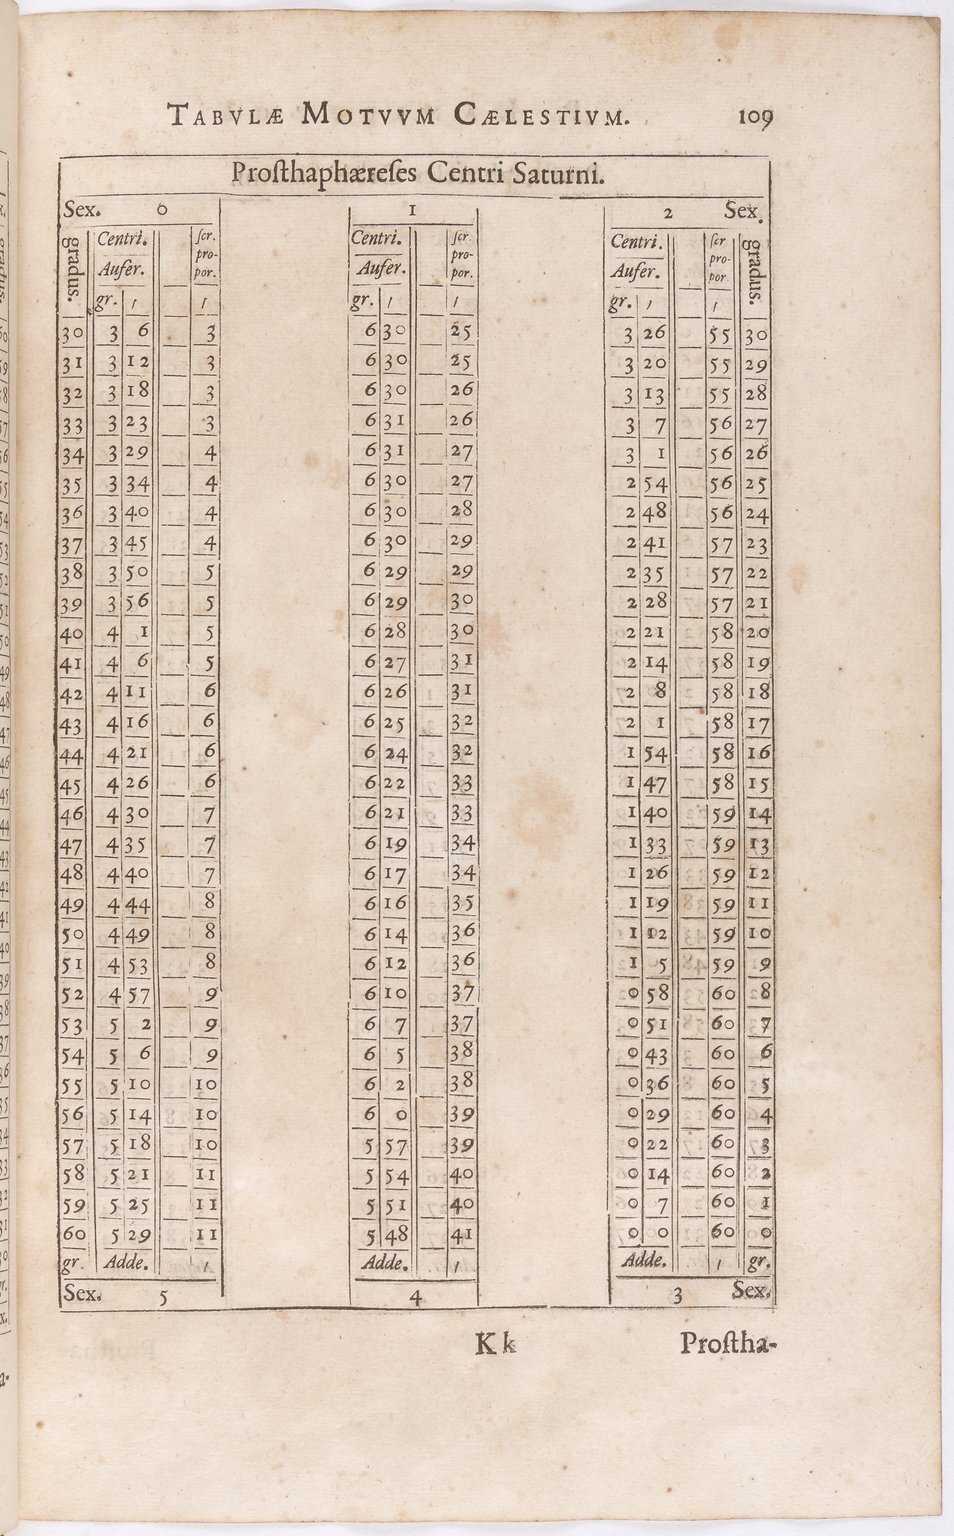 TABVLÆ MOTVVM CÆLESTIVM. 109
Proſthaphæreſes Centri Saturni.
Sex. 0 1 2 Sex.
gradus. Centri. ſcr. Centri. ſcr. Centri. ſcr gradus.
Aufer. pro- Aufer. pro- Aufer. pro-
por. por. por
gr. ′ ′ gr. ′ ′ gr. ′ ′
30 3 6 3 6 30 25 3 26 55 30
31 3 12 3 6 30 25 3 20 55 29
32 3 18 3 6 30 26 3 13 55 28
33 3 23 3 6 31 26 3 7 56 27
34 3 29 4 6 31 27 3 1 56 26
35 3 34 4 6 30 27 2 54 56 25
36 3 40 4 6 30 28 2 48 56 24
37 3 45 4 6 30 29 2 41 57 23
38 3 50 5 6 29 29 2 35 57 22
39 3 56 5 6 29 30 2 28 57 21
40 4 1 5 6 28 30 2 21 58 20
41 4 6 5 6 27 31 2 14 58 19
42 4 11 6 6 26 31 2 8 58 18
43 4 16 6 6 25 32 2 1 58 17
44 4 21 6 6 24 32 1 54 58 16
45 4 26 6 6 22 33 1 47 58 15
46 4 30 7 6 21 33 1 40 59 14
47 4 35 7 6 19 34 1 33 59 13
48 4 40 7 6 17 34 1 26 59 12
49 4 44 8 6 16 35 1 19 59 11
50 4 49 8 6 14 36 1 12 59 10
51 4 53 8 6 12 36 1 5 59 9
52 4 57 9 6 10 37 0 58 60 8
53 5 2 9 6 7 37 0 51 60 7
54 5 6 9 6 5 38 0 43 60 6
55 5 10 10 6 2 38 0 36 60 5
56 5 14 10 6 0 39 0 29 60 4
57 5 18 10 5 57 39 0 22 60 3
58 5 21 11 5 54 40 0 14 60 2
59 5 25 11 5 51 40 0 7 60 1
60 5 29 11 5 48 41 0 0 60 0
gr. Adde. ′ Adde. ′ Adde. ′ gr.
Sex. 5 4 3 Sex.
Kk Proſtha-